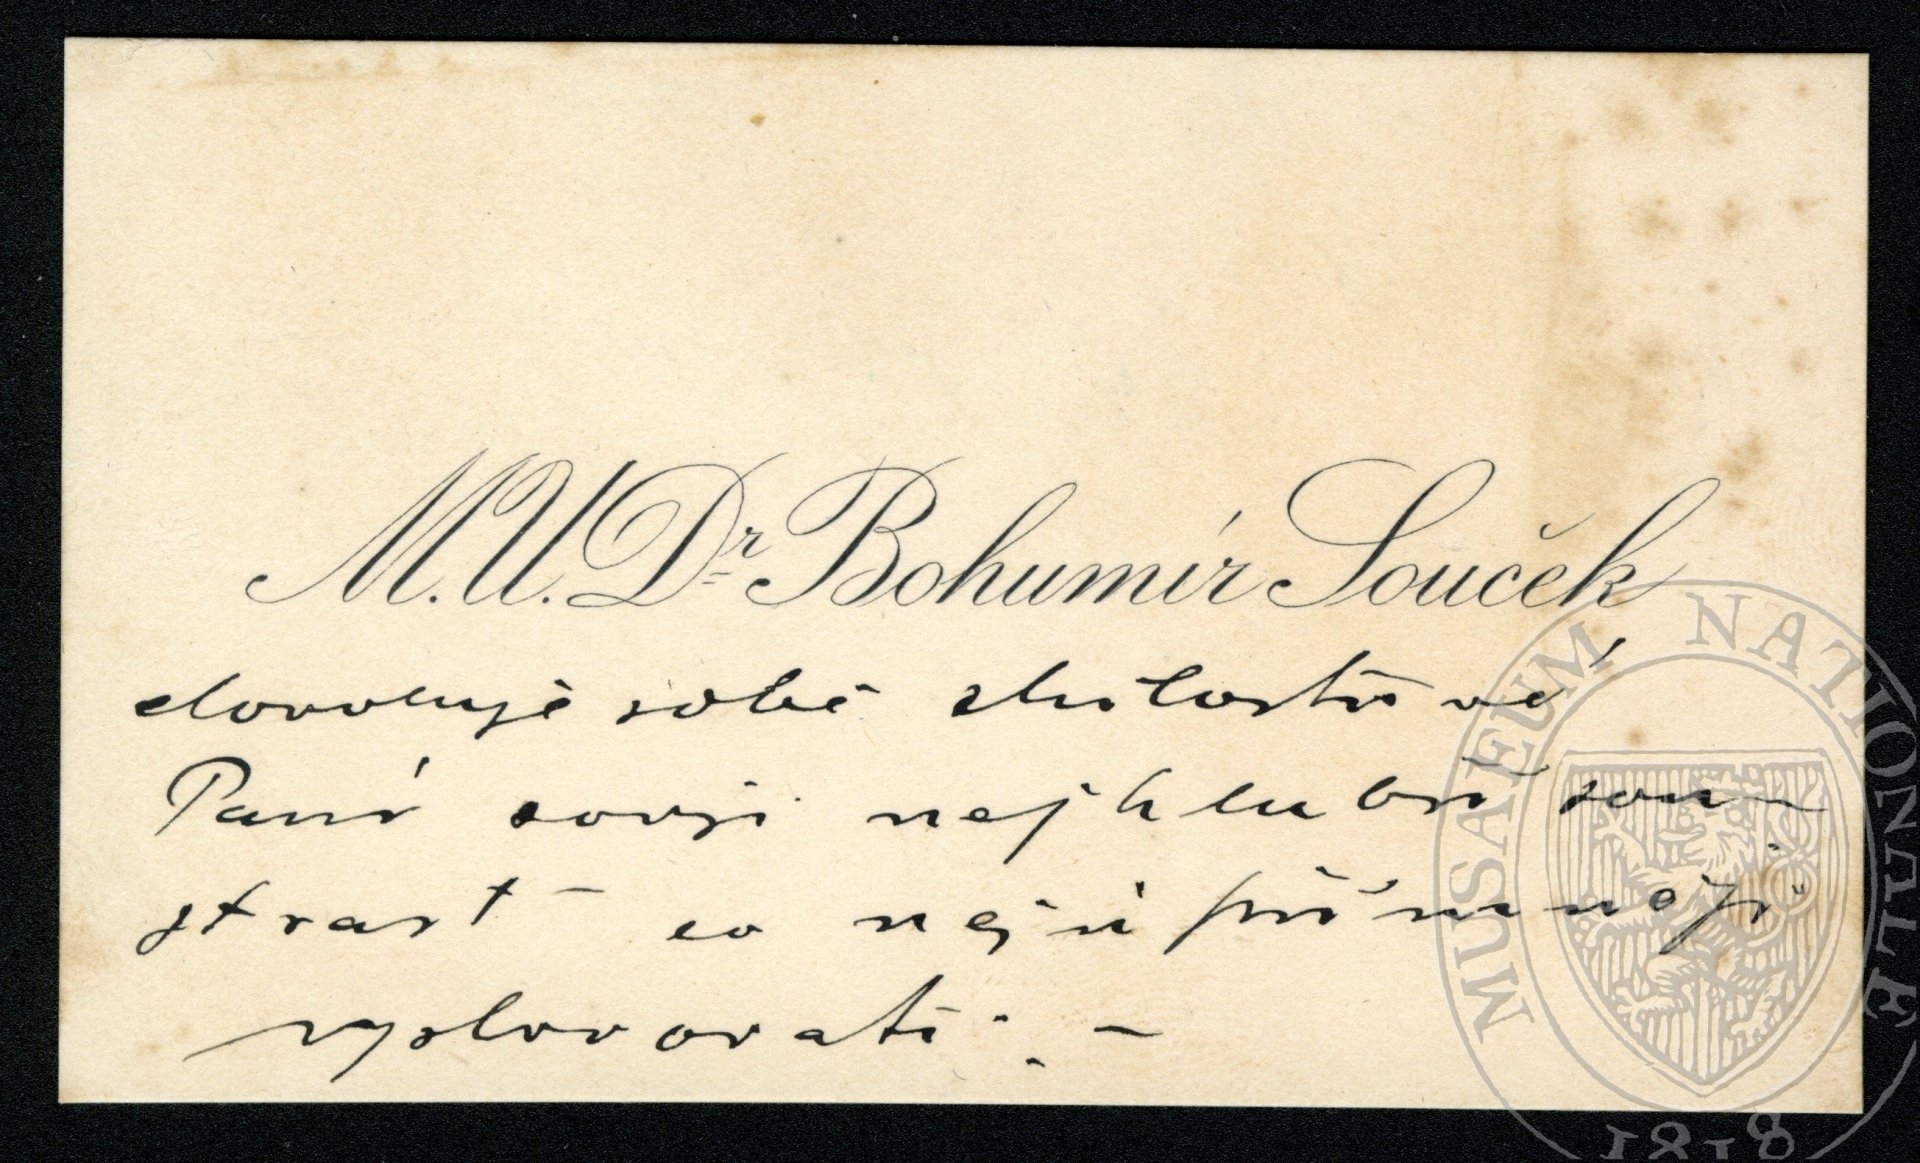 M.U.Dr. Bohumír Souček
dovoluje sobě milostivé
Paní svoji nejhlubší sou-
strast co nejupřímněji
vyslovovati. –
MUSAEUM NATIONALE
1818